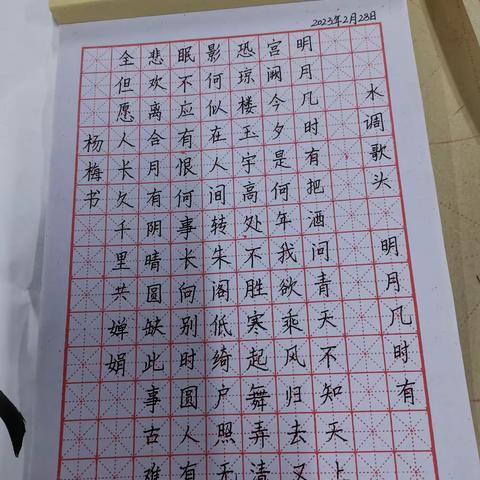 2023年2月28日
水调歌头 明月几时有
明月几时有把酒问青天不知天上
宫阙今夕是何年我欲乘风归去又
恐琼楼玉宇高处不胜寒起舞弄清
影何似在人间转朱阁低绮户照无
眠不应有恨何事长向别时圆人有
悲欢离合月有阴晴圆缺此事古难
全但愿人长久千里共婵娟
杨梅书